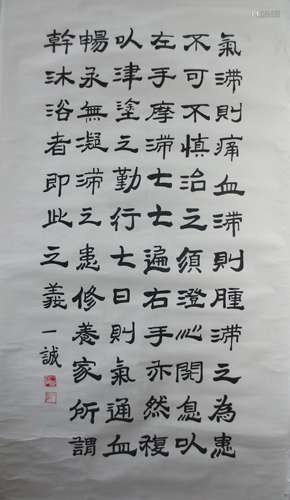 氣滯則痛血滯則腫滯之為患
不可不慎治之須澄心閉息以
左手摩滯七七遍右手亦然複
以津塗之勤行七日則氣通血
暢永無凝滯之患修養家所謂
幹沐浴者即此之義一誠